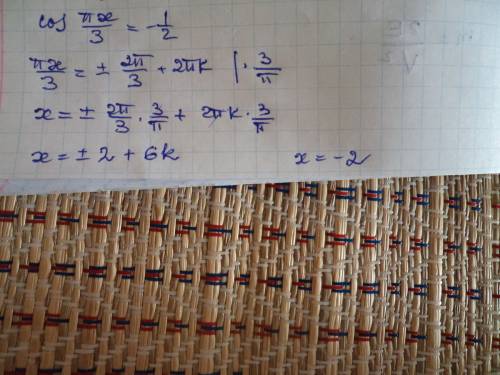 cos πx/3 = -1/2
πx/3 = ± 2π/3 + 2πk | · 3/π
x = ± 2π/3 · 3/π + 2πk · 3/π
x = ± 2 + 6k x = -2